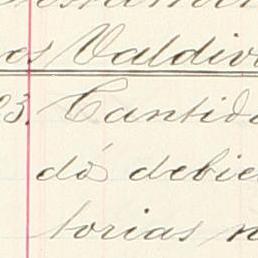 es Valdivi
23. Cantida
dó debie
torias n